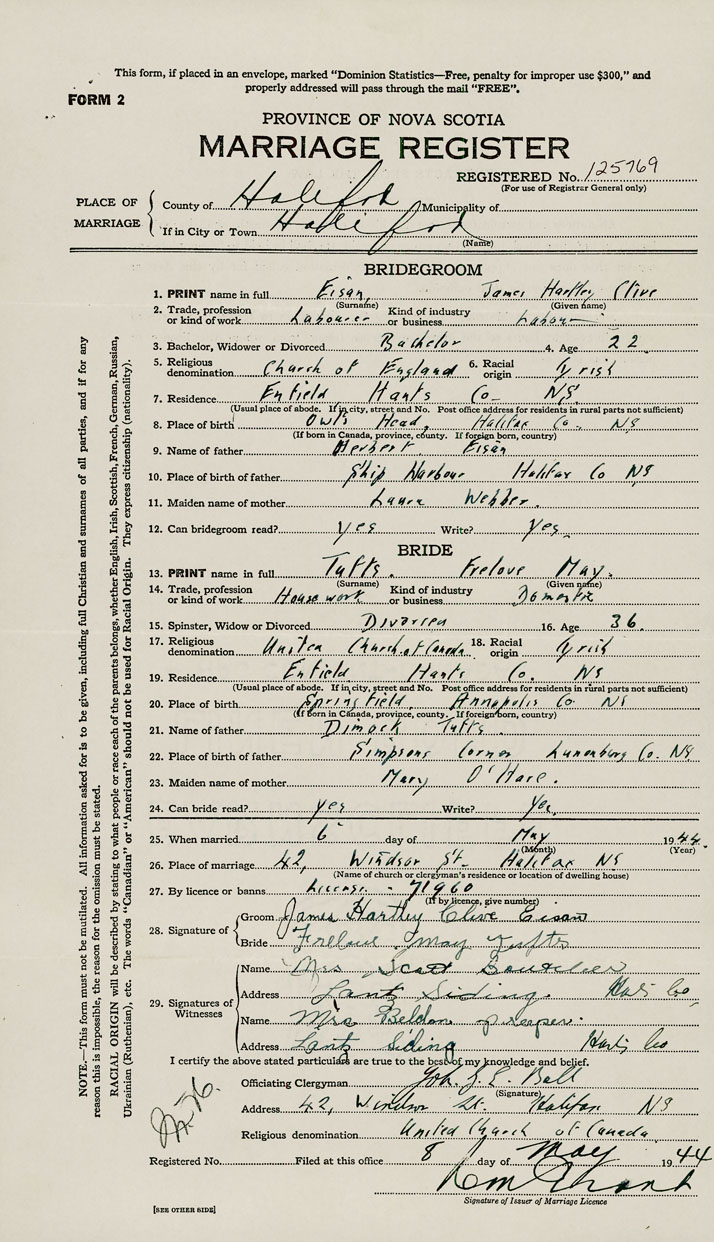 This form, if placed in an envelope, marked "Dominion Statistics—Free, penalty for improper use $300," and
properly addressed will pass through the mail "FREE".
FORM 2
PROVINCE OF NOVA SCOTIA
MARRIAGE REGISTER
REGISTERED No. 125769
(For use of Registrar General only)
PLACE OF MARRIAGE
County of Halifax Municipality of
If in City or Town Halifax
(Name)
BRIDEGROOM
1. PRINT name in full Eisan, James Hartley Clive
(Surname) (Given name)
2. Trade, profession or kind of work Labourer Kind of industry or business Labour
3. Bachelor, Widower or Divorced Bachelor 4. Age 22
5. Religious denomination Church of England 6. Racial origin Irish
7. Residence Enfield Hants Co NS
(Usual place of abode. If in city, street and No. Post office address for residents in rural parts not sufficient)
8. Place of birth Owls Head, Halifax Co. NS
(If born in Canada, province, county. If foreign born, country)
9. Name of father Herbert Eisan
10. Place of birth of father Ship Harbour Halifax Co NS
11. Maiden name of mother Laura Webber.
12. Can bridegroom read? yes Write? yes
BRIDE
13. PRINT name in full Tufts. Frelove May.
(Surname) (Given name)
14. Trade, profession or kind of work House work Kind of industry or business Domestic
15. Spinster, Widow or Divorced Divorced 16. Age 36.
17. Religious denomination United Church of Canada 18. Racial origin Irish
19. Residence Enfield Hants Co. NS
(Usual place of abode. If in city, street and No. Post office address for residents in rural parts not sufficient)
20. Place of birth Springfield, Annapolis Co NS
(If born in Canada, province, county. If foreign born, country)
21. Name of father Dimock Tufts.
22. Place of birth of father Simpsons Corner Lunenburg Co. NS
23. Maiden name of mother Mary O'Hare.
24. Can bride read? yes Write? Yes,
25. When married 6 day of May 1944.
(Month) (Year)
26. Place of marriage 42, Windsor St. Halifax NS
(Name of church or clergyman's residence or location of dwelling house)
27. By licence or banns License - 71960
(If by licence, give number)
28. Signature of
Groom James Hartley Clive Eisan
Bride Frelove May Tufts
29. Signatures of Witnesses
Name Mrs Scott
Address Lantz Siding. Hants Co
Name Mrs Beldon
Address Lantz Siding Hants Co
I certify the above stated particulars are true to the best of my knowledge and belief.
Officiating Clergyman Bell
(Signature)
Address 42, Windsor St. Halifax NS
Religious denomination United Church of Canada
Registered No. Filed at this office 8 day of May 1944
Signature of Issuer of Marriage Licence
[SEE OTHER SIDE]
NOTE.—This form must not be mutilated. All information asked for is to be given, including full Christian and surnames of all parties, and if for any
reason this is impossible, the reason for the omission must be stated.
RACIAL ORIGIN will be described by stating to what people or race each of the parents belongs, whether English, Irish, Scottish, French, German, Russian,
Ukrainian (Ruthenian), etc. The words "Canadian" or "American" should not be used for Racial Origin. They express citizenship (nationality).